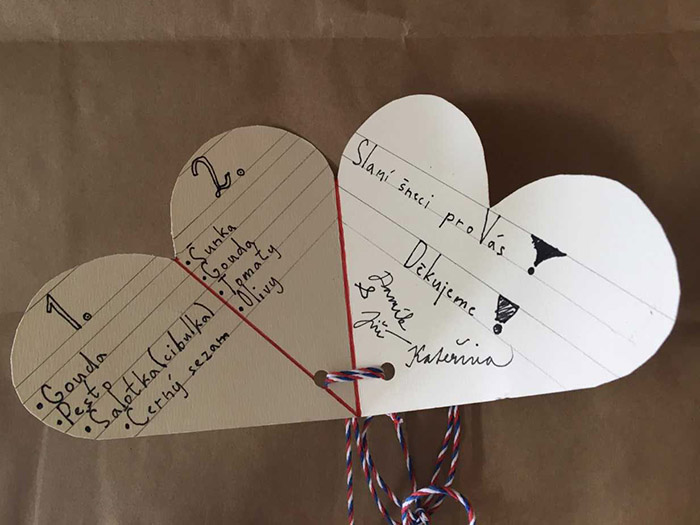 1.
• Gouda
• Pesto
• Šalotka (cibulka)
• Černý sezam
2.
• Šunka
• Gouda
• Tomaty
• Olivy
Slaní šneci pro Vás !
Děkujeme !
Daník
&
Jiří —
Kateřina